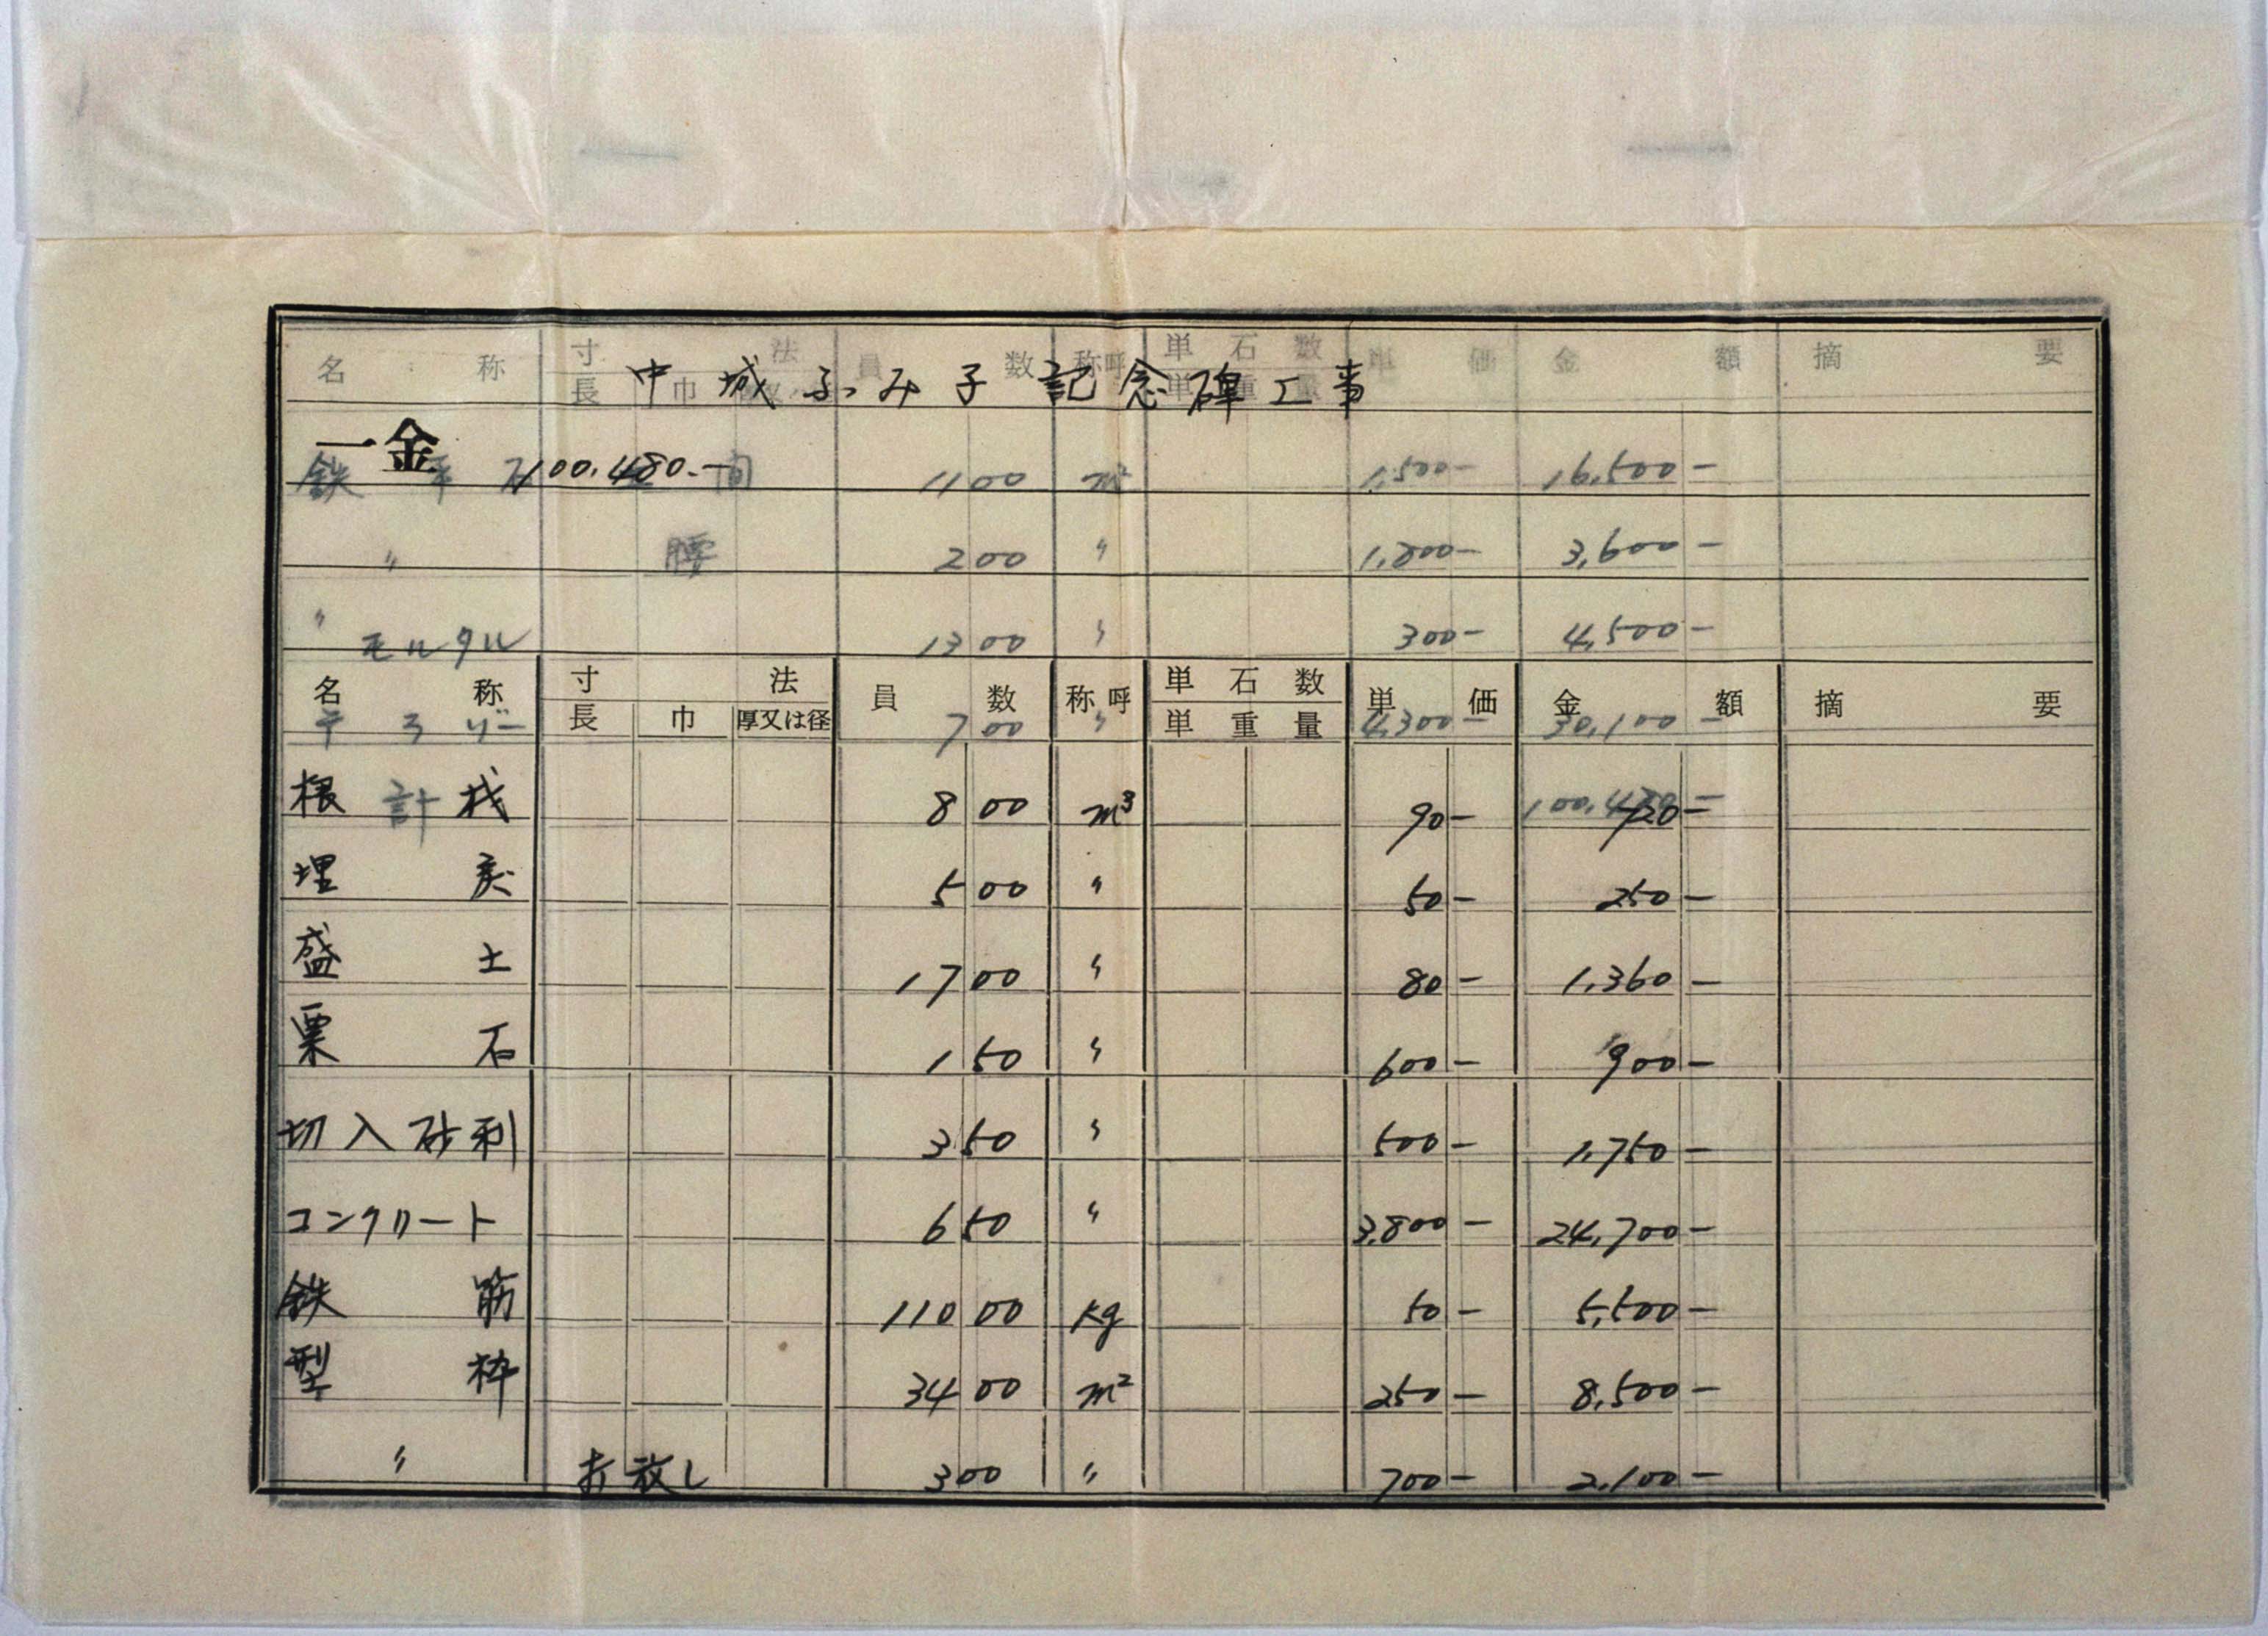 中城ふみ子記念碑工事
一金 100.480.-
名称 寸法 員数 称呼 単石数 単価 金額 摘要
長 巾 厚又は径 単重量
鉄平石 1100 m² 1,500- 16,500-
〃 腰 200 〃 1,800- 3,600-
〃 モルタル 1300 〃 300- 4,500-
名称 寸法 員数 称呼 単石数 単価 金額 摘要
長 巾 厚又は径 単重量
テラゾー 700 〃 4,300- 30,100-
計
根伐 800 m³ 90- 720-
埋戻 500 〃 50- 250-
盛土 1700 〃 80- 1,360-
栗石 150 〃 600- 900-
切入砂利 350 〃 500- 1,750-
コンクリート 650 〃 3,800- 24,700-
鉄筋 11000 kg 50- 5,500-
型枠 3400 m² 250- 8,500-
〃 打放し 300 〃 700- 2,100-